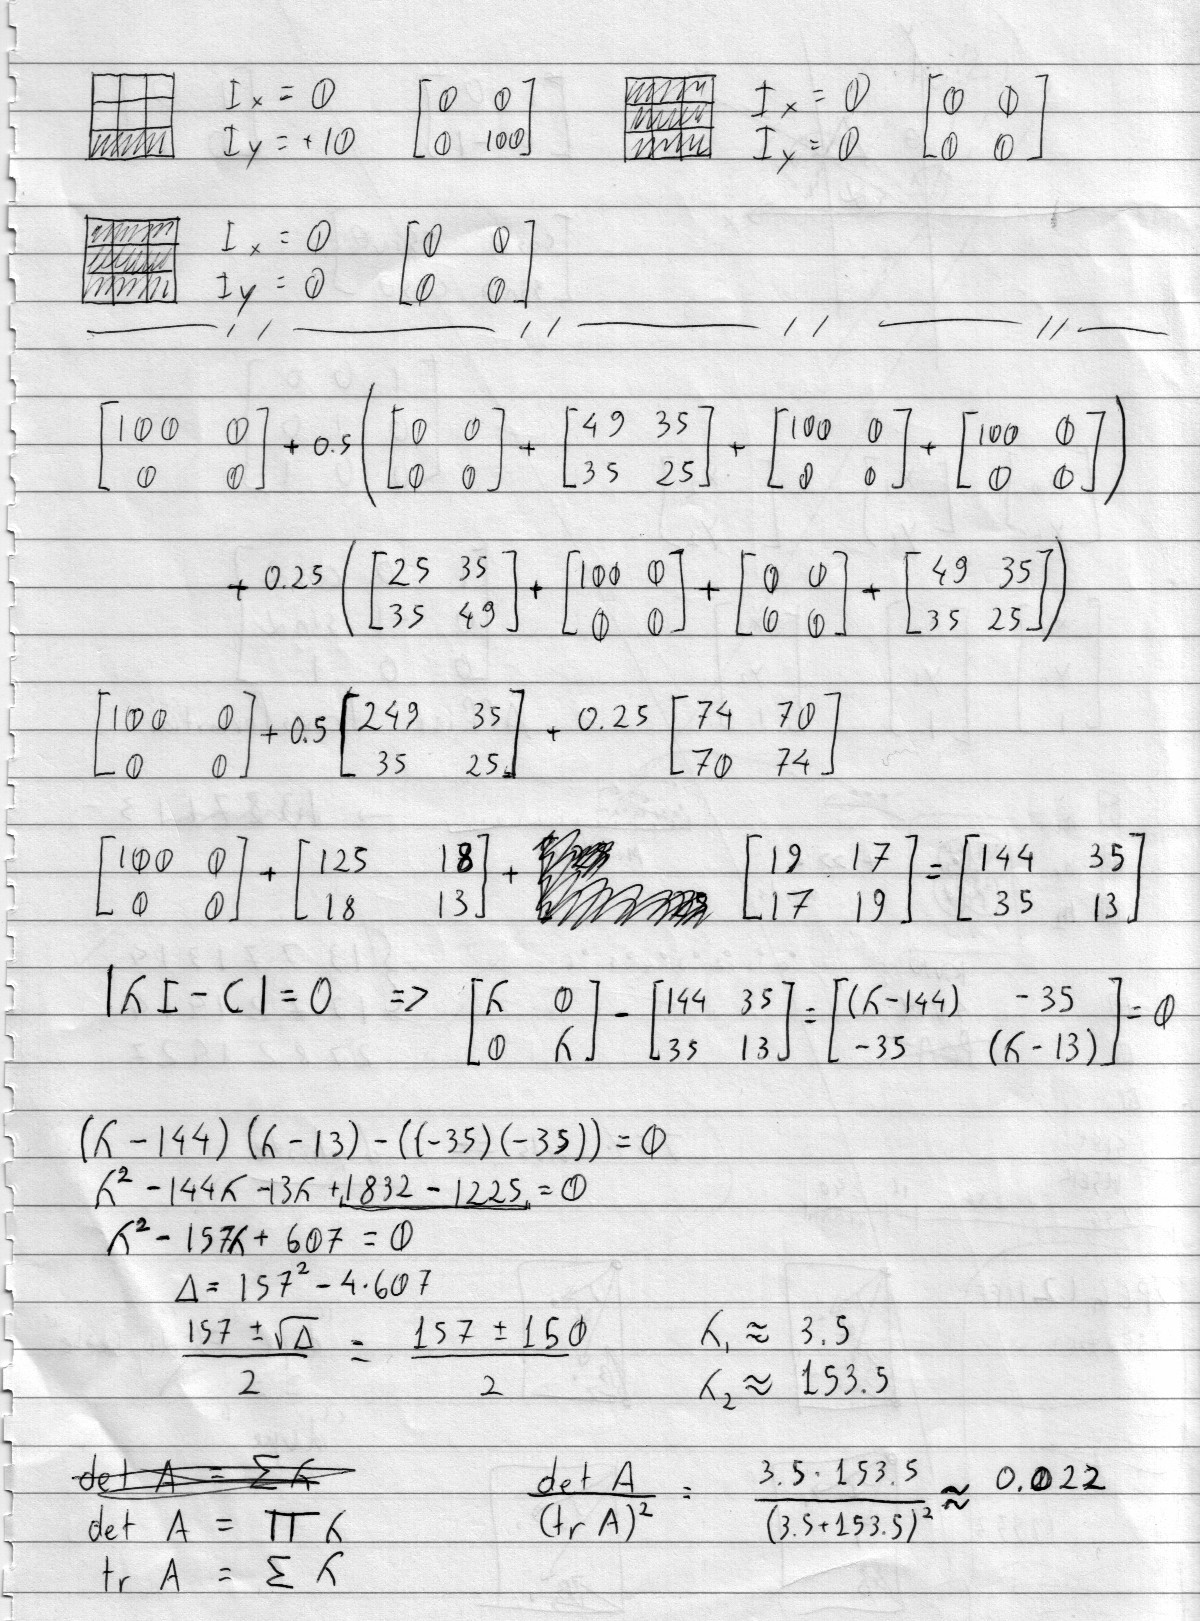 I x = 0 [0 0 I x = 0 [0 0
I y = +10 0 100] I y = 0 0 0]
I x = 0 [0 0
I y = 0 0 0]
[100 0 0 0] + 0.5 ([0 0 0 0] + [49 35 35 25] + [100 0 0 0] + [100 0 0 0])
+ 0.25 ([25 35 35 49] + [100 0 0 0] + [0 0 0 0] + [49 35 35 25])
[100 0 0 0] + 0.5 [249 35 35 25] + 0.25 [74 70 70 74]
[100 0 0 0] + [125 18 18 13] + [19 17 17 19] = [144 35 35 13]
|λI - C| = 0 => [λ 0 0 λ] - [144 35 35 13] = [(λ-144) -35 -35 (λ-13)] = 0
(λ - 144) (λ - 13) - ((-35)(-35)) = 0
λ² - 144λ - 13λ + 1832 - 1225 = 0
λ² - 157λ + 607 = 0
Δ = 157² - 4·607
157 ± √Δ / 2 = 157 ± 150 / 2 λ₁ ≈ 3.5
λ₂ ≈ 153.5
det A = Σ λ
det A = Π λ
tr A = Σ λ
det A / (tr A)² = 3.5 · 153.5 / (3.5+153.5)² ≈ 0.022